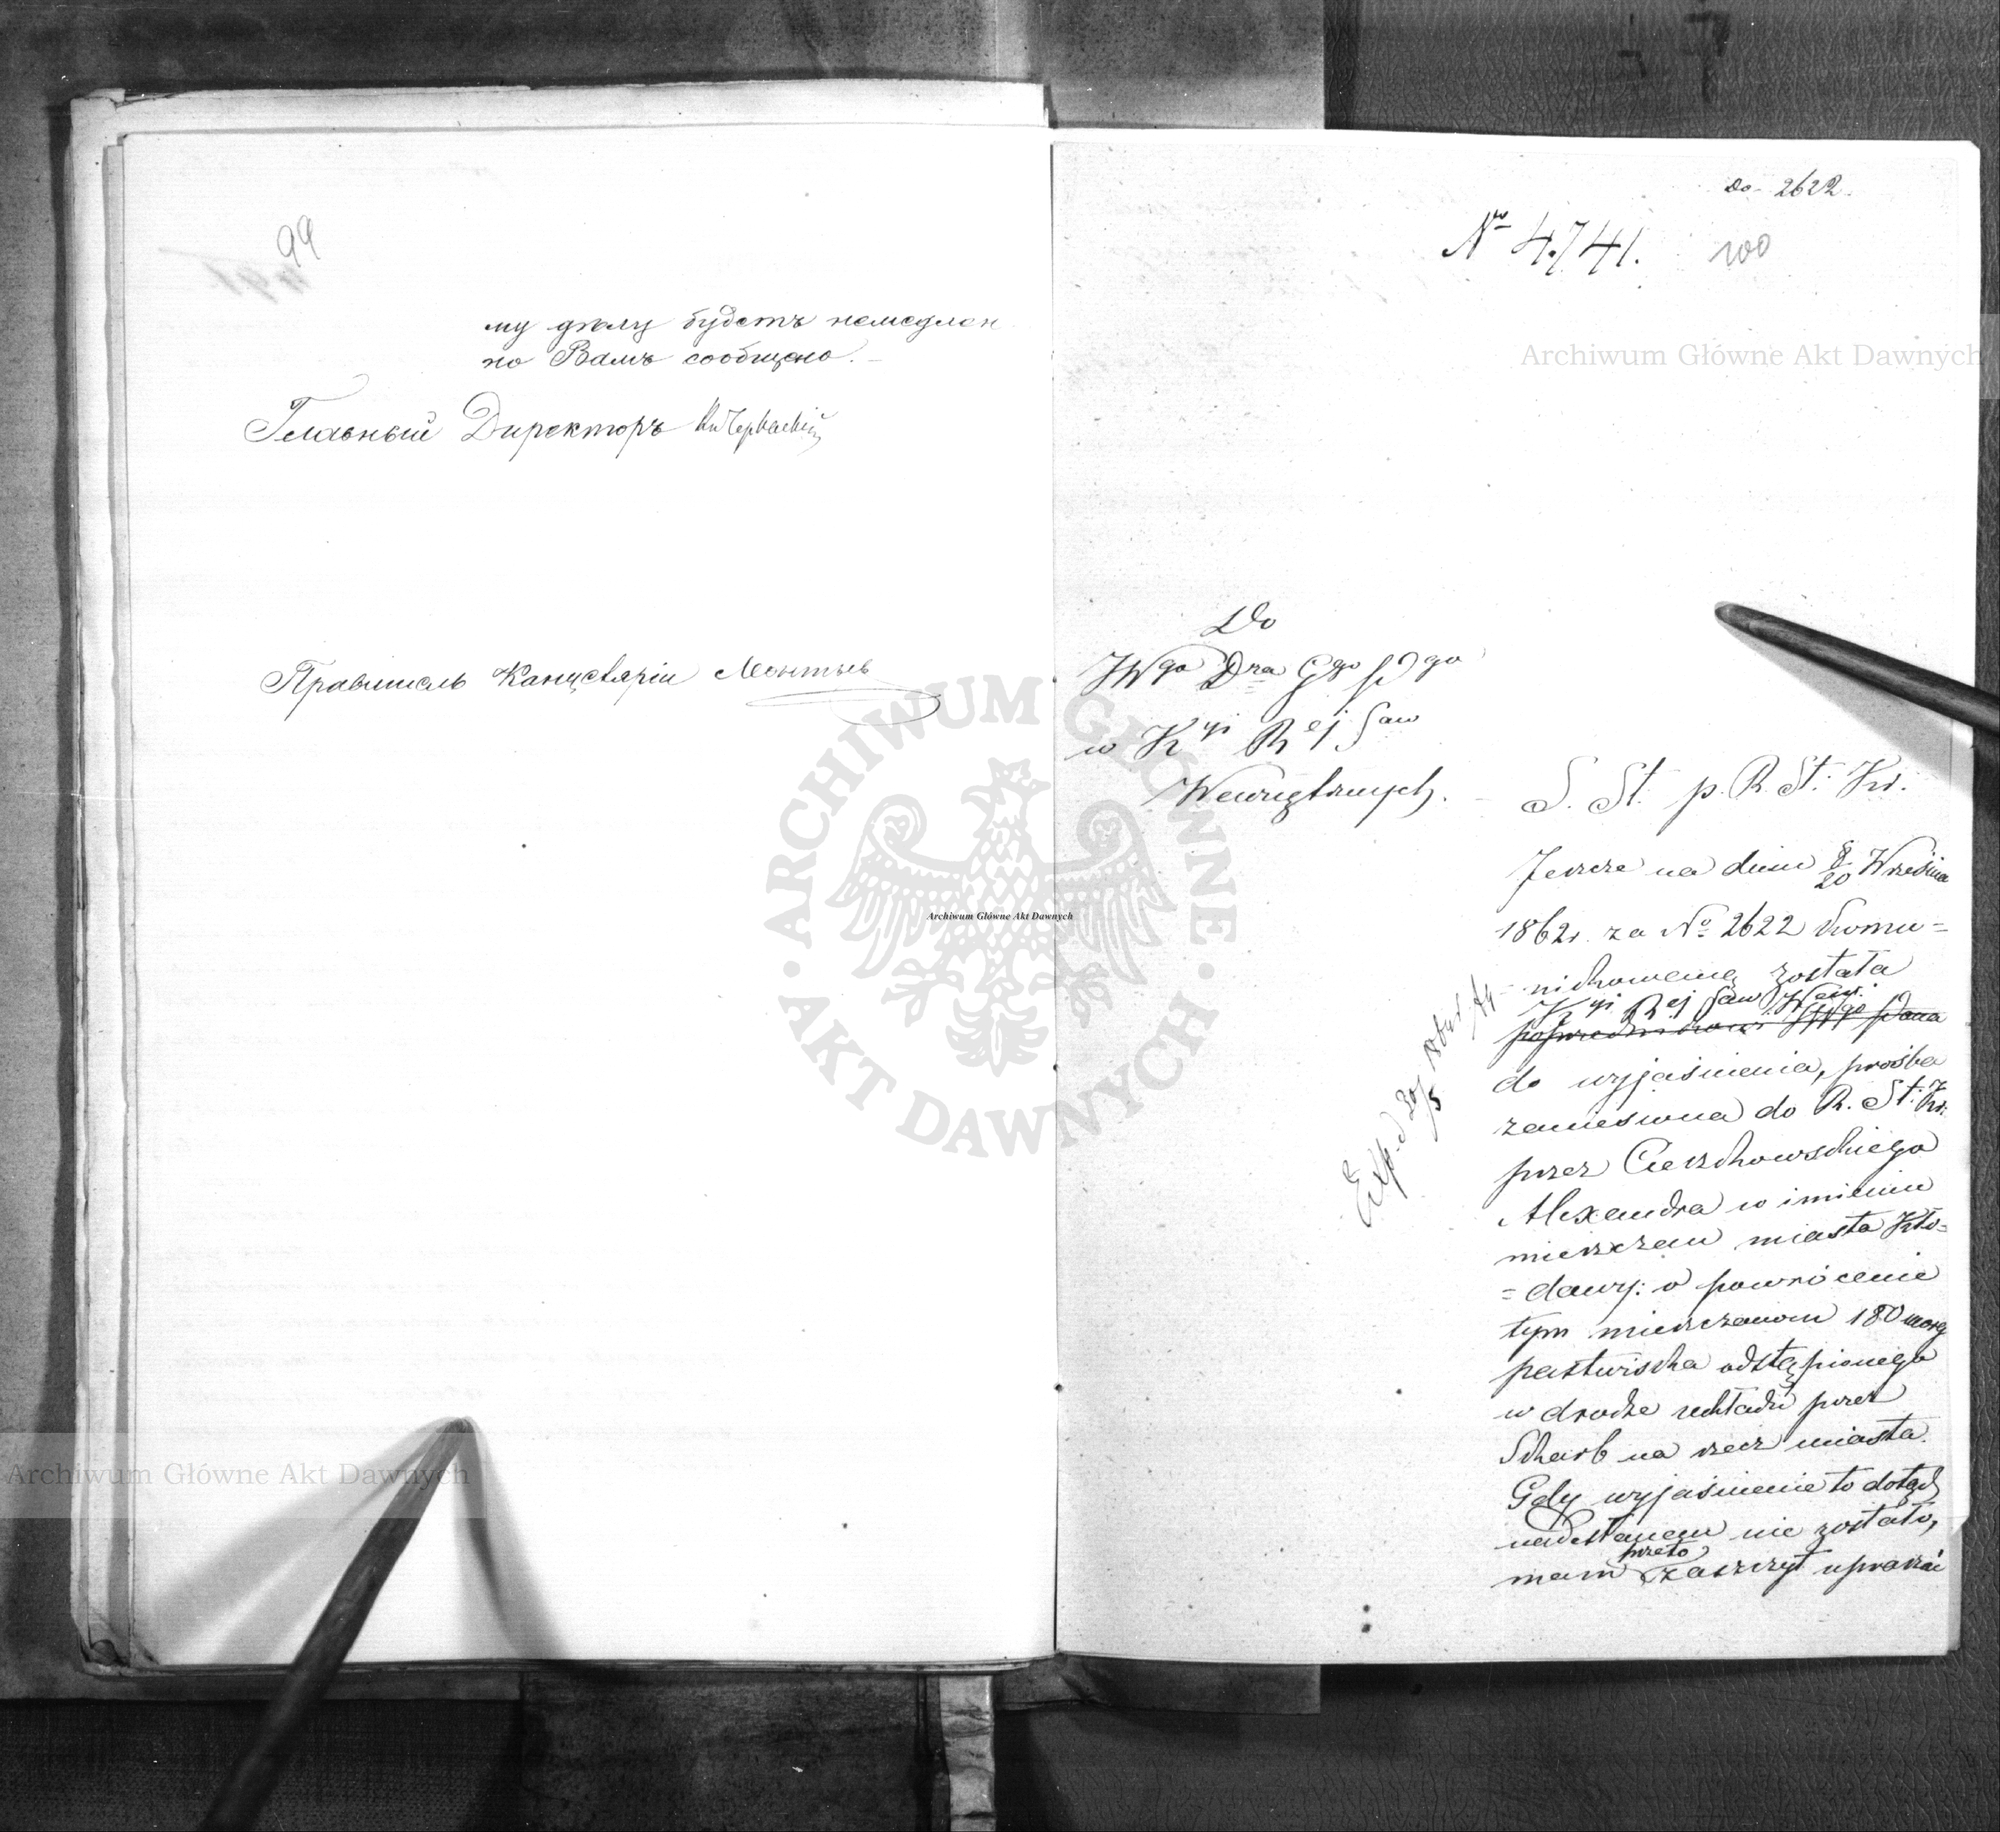 99
му дѣлу будетъ немедлен
но Вамъ сообщено.
Главный Директоръ
Правитель Канцеляріи Леонтьев
do 2622.
No 4741.
100
Do
JWgo Dra Ggo Pgo
w Kyi Rej Saw
Wewnętrznych.
S. St. p. R. St. Kr.
Jeszcze na dniu 8/20 Września
1862 r. za No 2622 komu=
=nikowaną została
Kyi Rej Saw Wew.
pośrednictwem JWgo Pana
do wyjaśnienia, prośba
zaniesiona do R. St. Kr.
przez Cieszkowskiego
Alexandra w imieniu
mieszczan miasta Kło=
=dawy: o powrócenie
tym mieszczanom 180 morg
pastwiska odstąpionego
w drodze układu przez
Skarb na rzecz miasta.
Gdy wyjaśnienie to dotąd
nadesłanem nie zostało,
przeto
mam zaszczyt upraszać
Exp. d 20/5
Archiwum Główne Akt Dawnych
Archiwum Główne Akt Dawnych
Archiwum Główne Akt Dawnych
ARCHIWUM GŁÓWNE AKT DAWNYCH